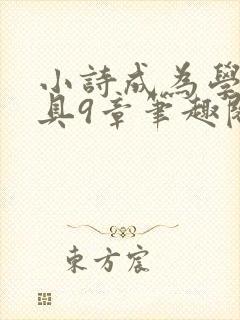 小詩成為學
具9章筆趣閣
東方宸